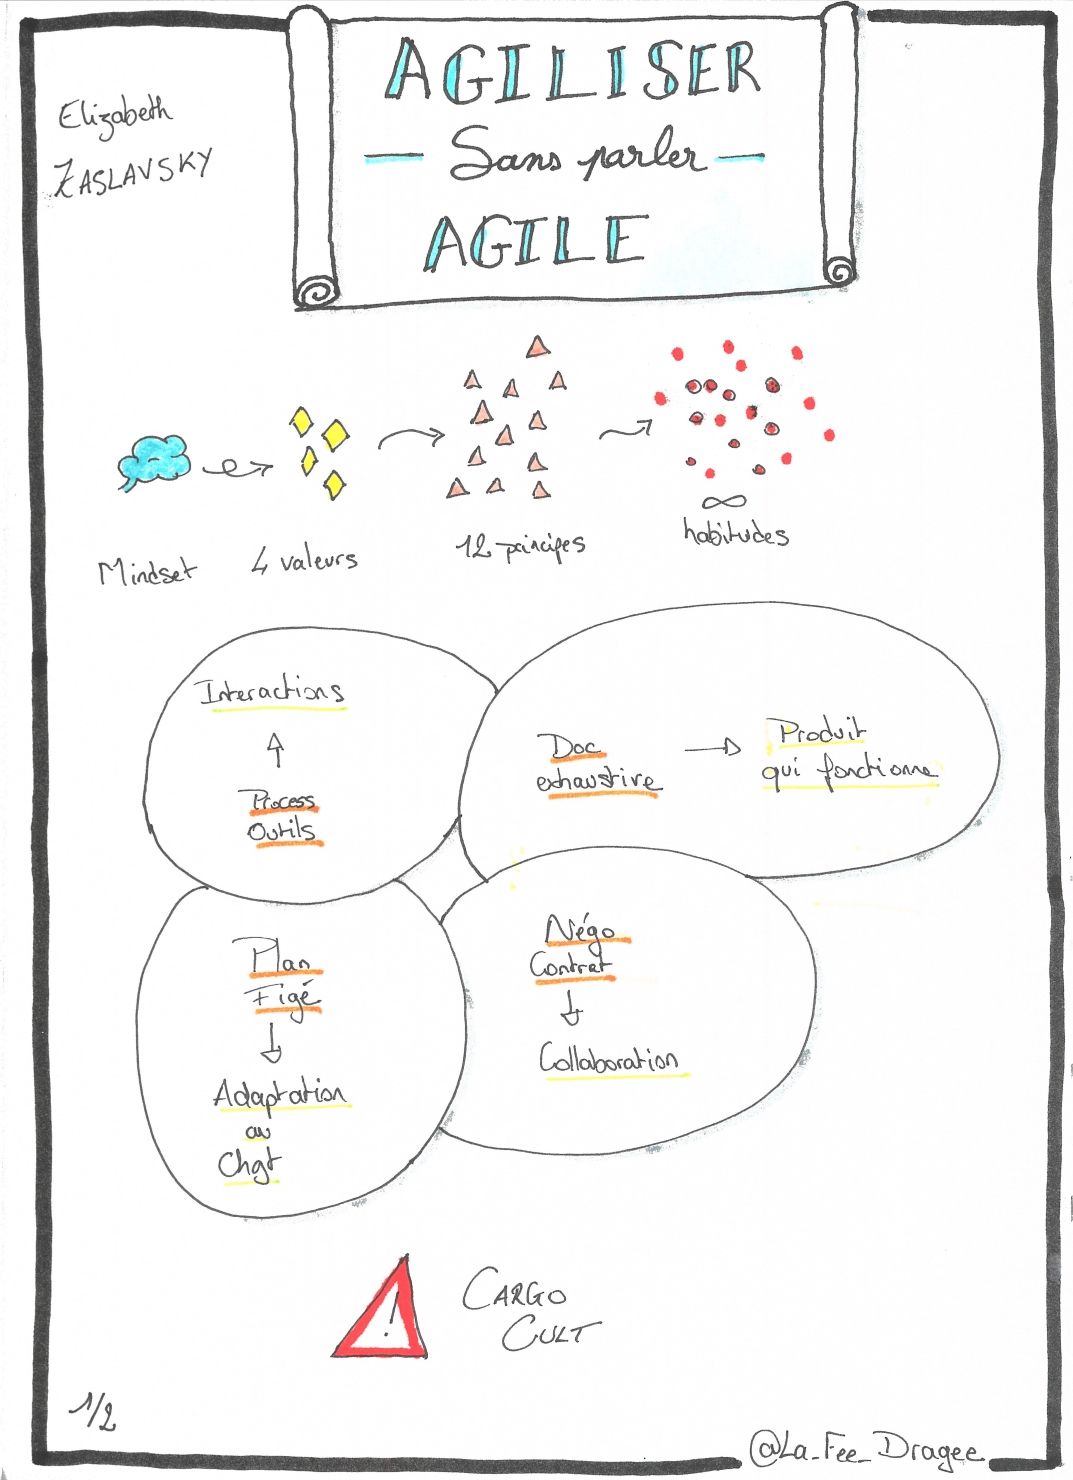 AGILISER
Sans parler
AGILE
Elizabeth
ZASLAVSKY
Mindset
4 valeurs
12 principes
∞
habitudes
Interactions
Process
Outils
Doc
exhaustive
Produit
qui fonctionne
Plan
Figé
Adaptation
au
Chgt
Négo
Contrat
Collaboration
!
CARGO
CULT
1/2
@La_Fee_Dragee